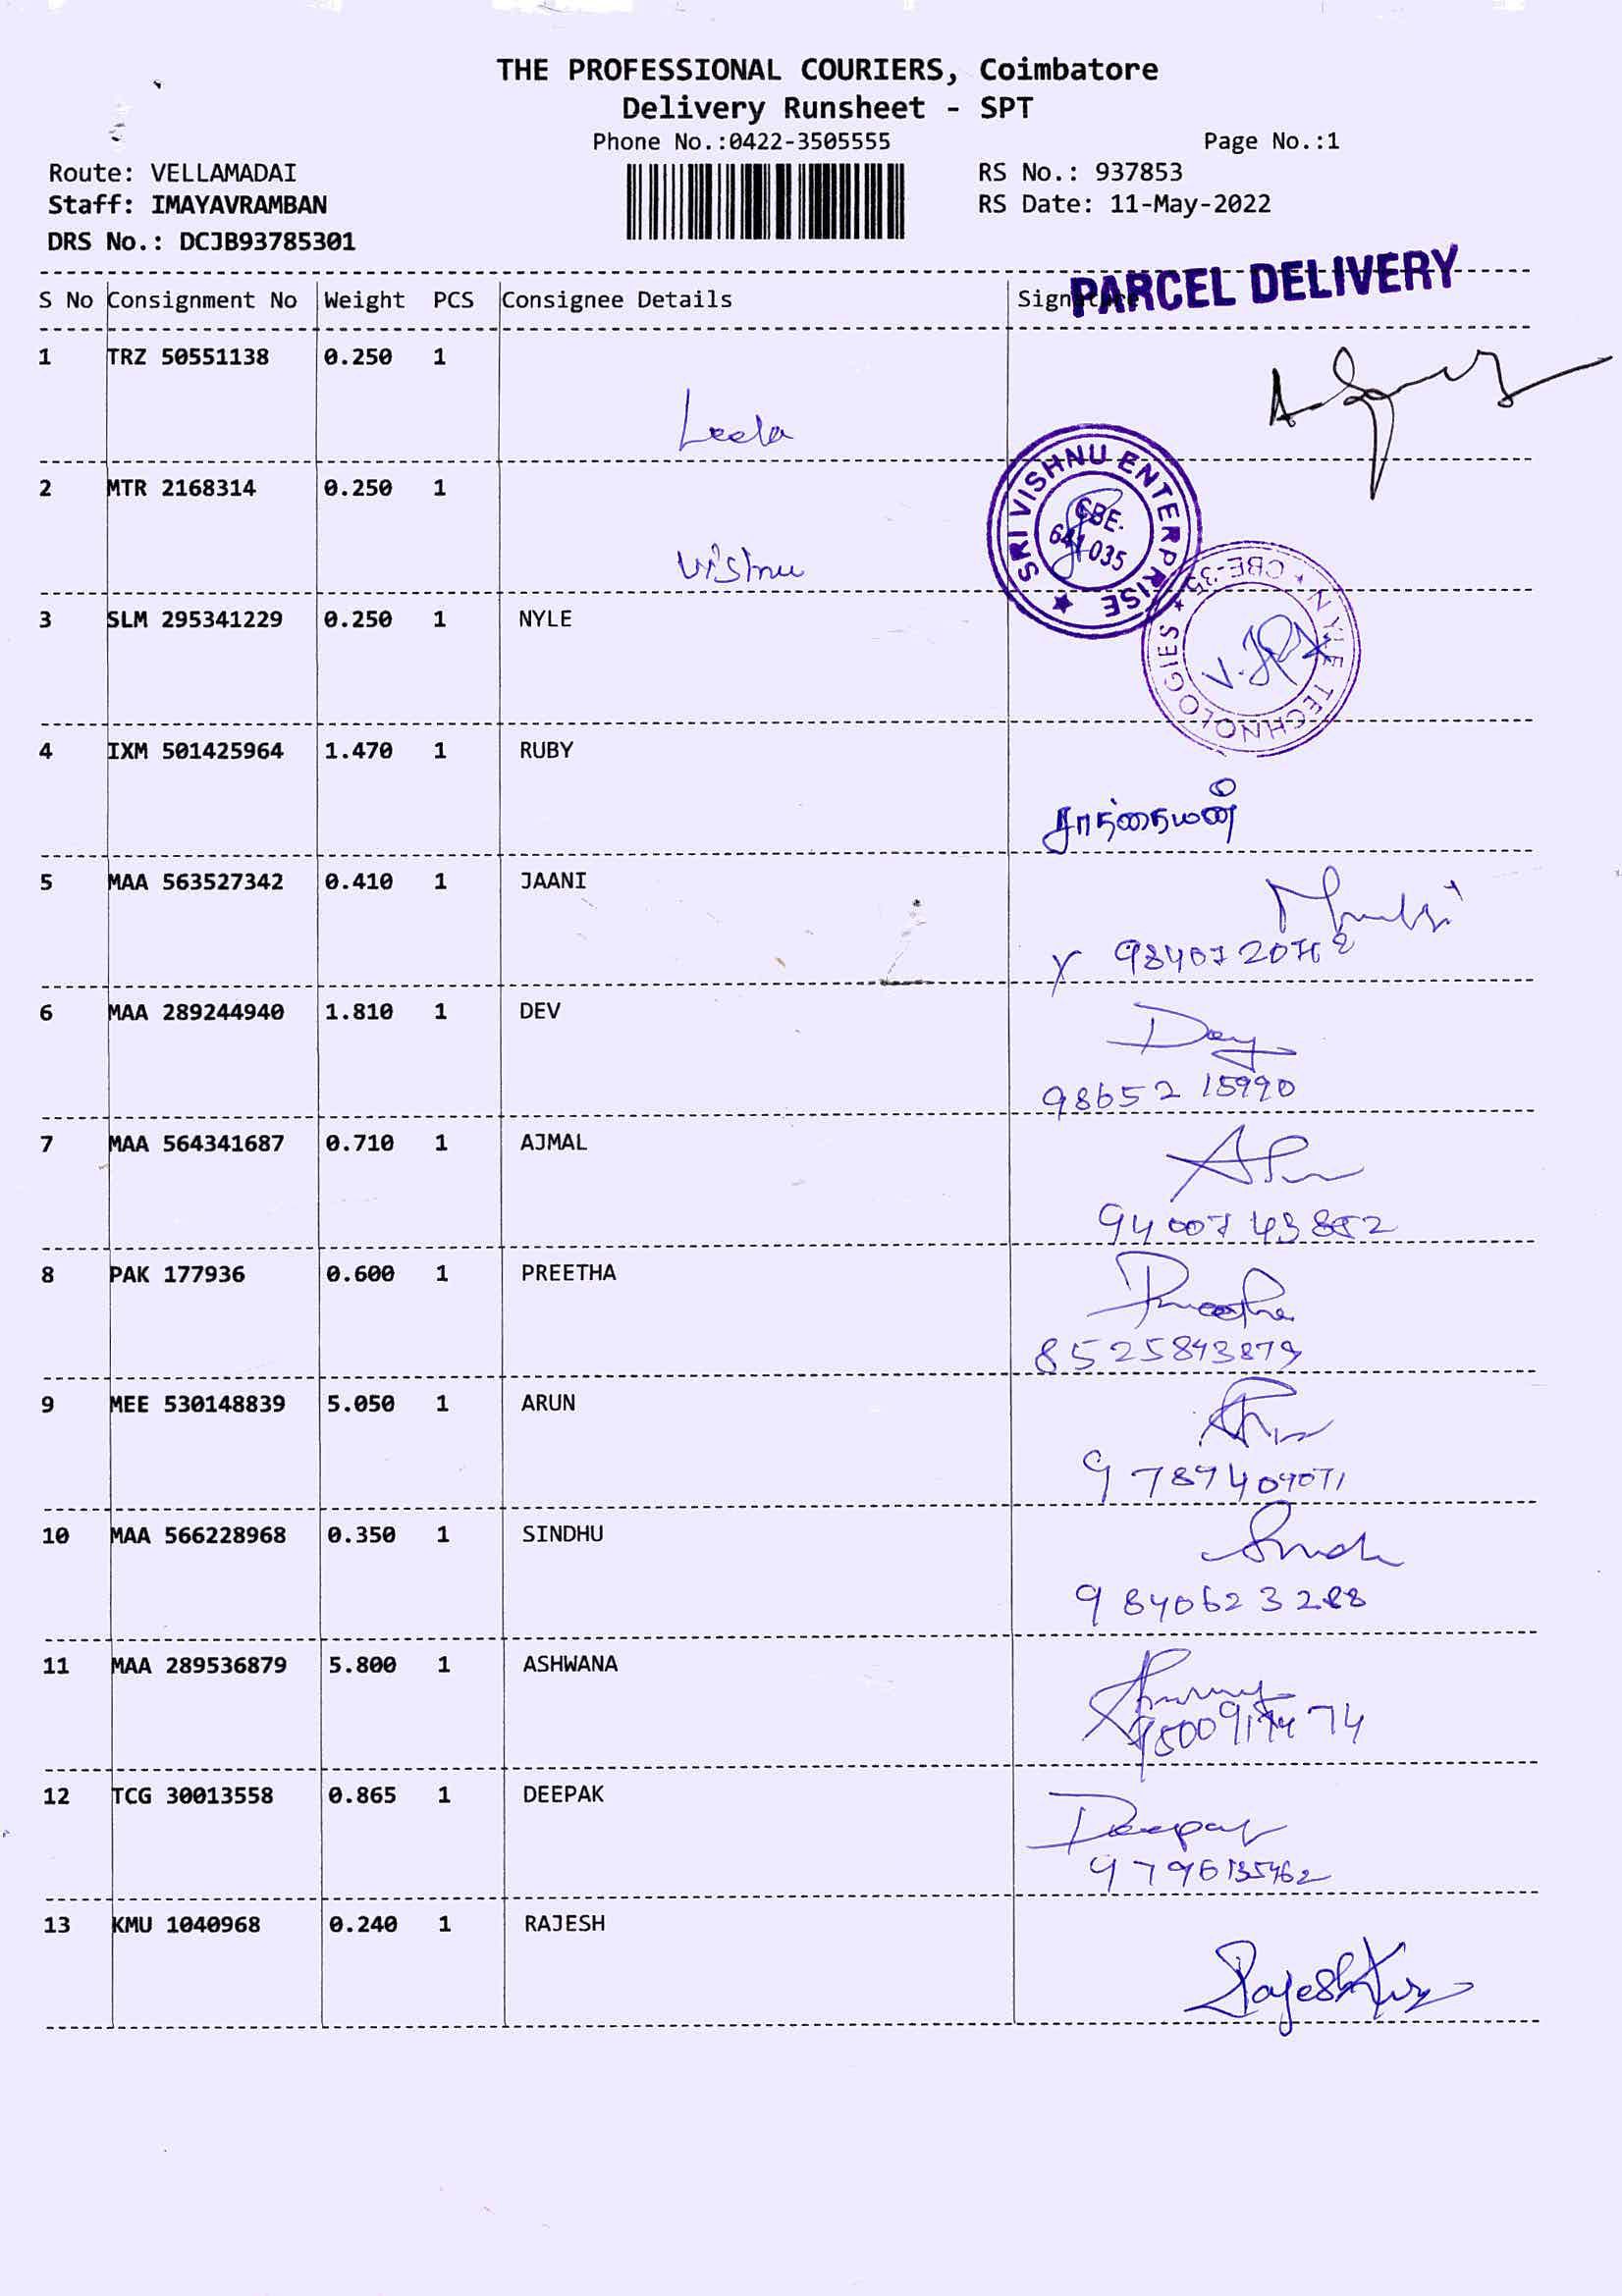 THE PROFESSIONAL COURIERS, Coimbatore
Delivery Runsheet - SPT
Phone No.:0422-3505555 Page No.:1
Route: VELLAMADAI RS No.: 937853
Staff: IMAYAVRAMBAN RS Date: 11-May-2022
DRS No.: DCJB93785301
PARCEL DELIVERY
S No Consignment No Weight PCS Consignee Details Signature
1 TRZ 50551138 0.250 1
Leela
2 MTR 2168314 0.250 1
SRI VISHNU ENTERPRISE
CBE-
641 035
Vishnu
3 SLM 295341229 0.250 1 NYLE
NYLE TECHNOLOGIES * CBE-35 *
4 IXM 501425964 1.470 1 RUBY
5 MAA 563527342 0.410 1 JAANI
6 MAA 289244940 1.810 1 DEV
Dev
98652 15990
7 MAA 564341687 0.710 1 AJMAL
8 PAK 177936 0.600 1 PREETHA
Preetha
8525843879
9 MEE 530148839 5.050 1 ARUN
9789409071
10 MAA 566228968 0.350 1 SINDHU
9840623288
11 MAA 289536879 5.800 1 ASHWANA
12 TCG 30013558 0.865 1 DEEPAK
Deepak
9796135462
13 KMU 1040968 0.240 1 RAJESH